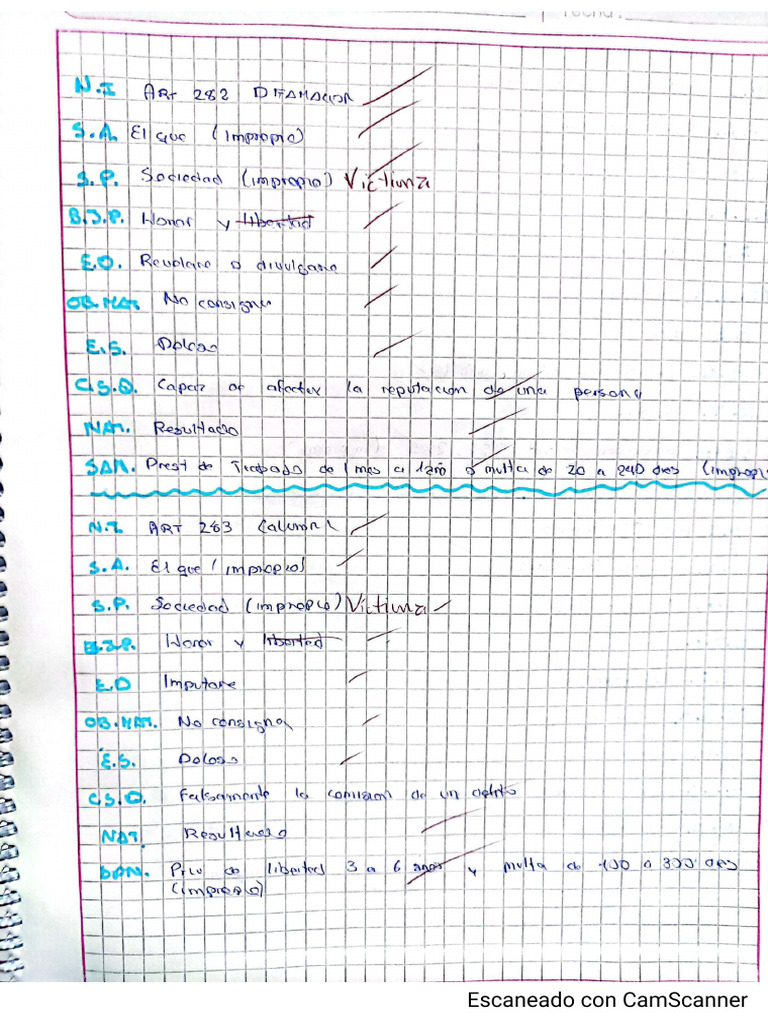 fecha:
N.I ART 282 DIFAMACION
S.A. El que (Impropio)
S.P. Sociedad (impropio) Victima
B.J.P. Honor y libertad
E.O. Revelare o divulgare
OB.MAT. No consigna
E.S. Doloso
C.S.O. Capaz de afectar la reputacion de una persona
NAT. Resultado
SAN. Prest de Trabado de 1 mes a 1 año o multa de 20 a 240 dias (impropi
N.I. ART 283 Calumni
S.A. El que (impropio)
S.P. Sociedad (impropio) Victima
B.J.P. Honor y libertad
E.O Imputare
OB.MAT. No consigna
E.S. Doloso
C.S.O. Falsamente la comision de un delito
NAT. Resultado
SAN. Priv de libertad 3 a 6 años y multa de 100 a 300 dias
(impropio)
Escaneado con CamScanner